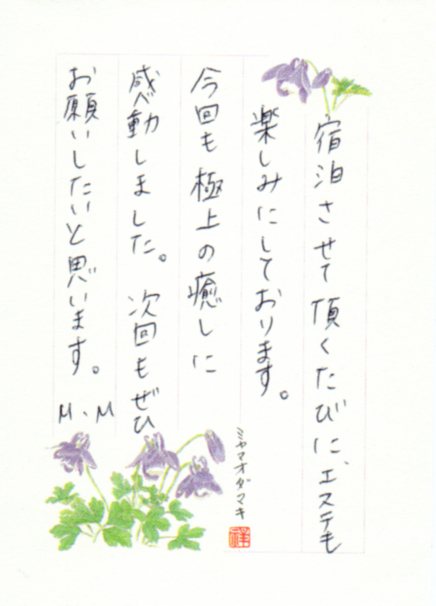 宿泊させて頂くたびに、エステも
楽しみにしております。
今回も極上の癒しに
感動しました。次回もぜひ
お願いしたいと思います。
M.M
ミヤマオダマキ